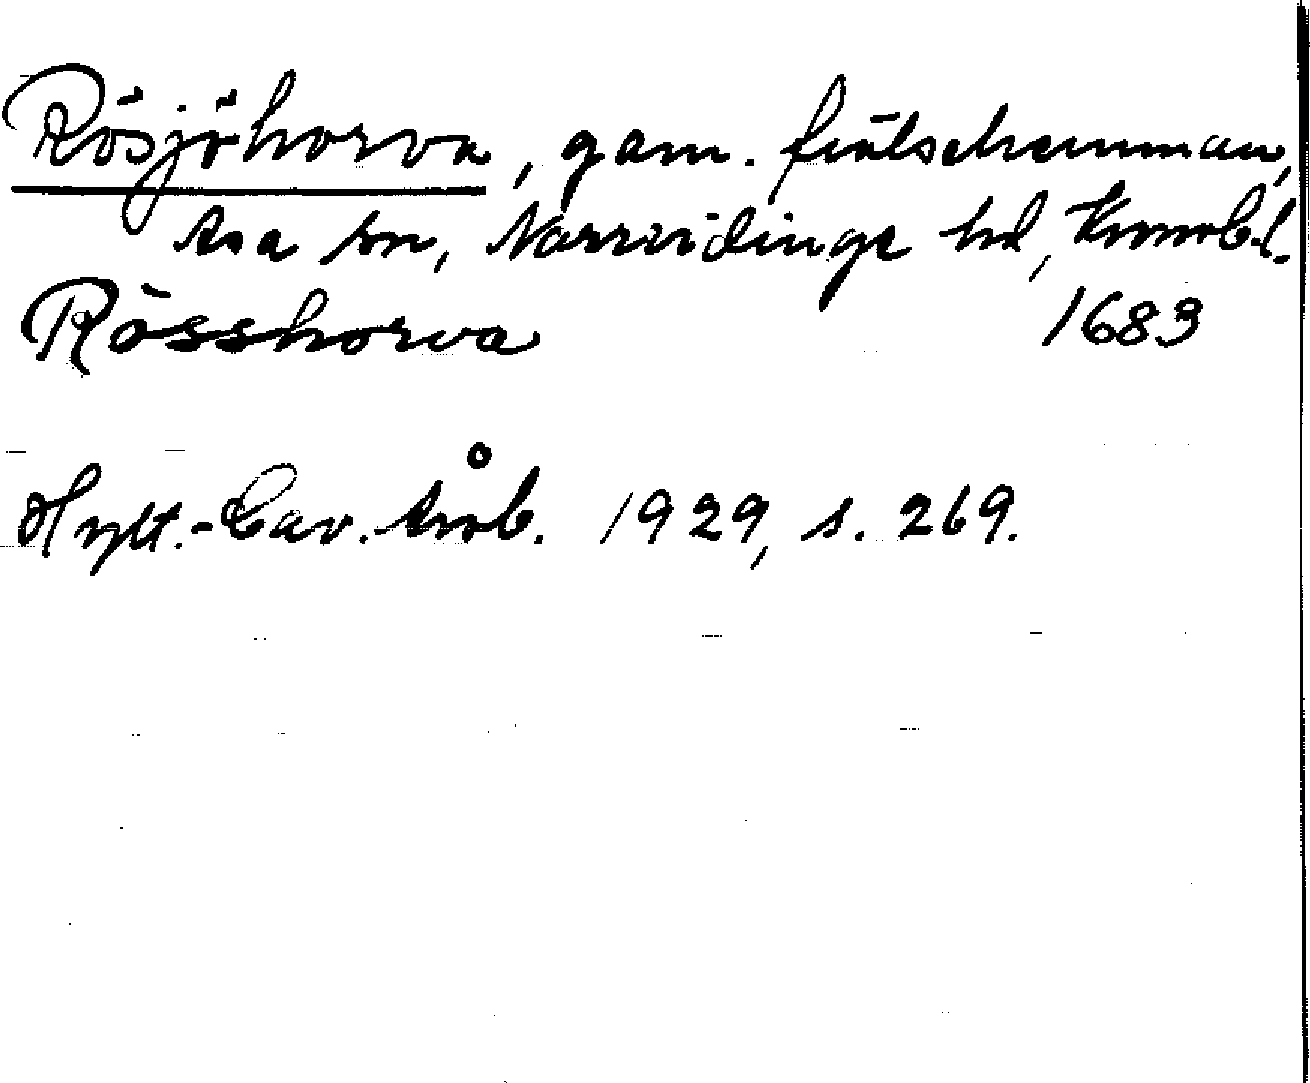 Rösjöhorva, gam. frälsehemman,
Asa sn, Norrvidinge hd, Kronob. l.
Rösshorva 1683
Hylt.-Cav. Årsb. 1929, s. 269.